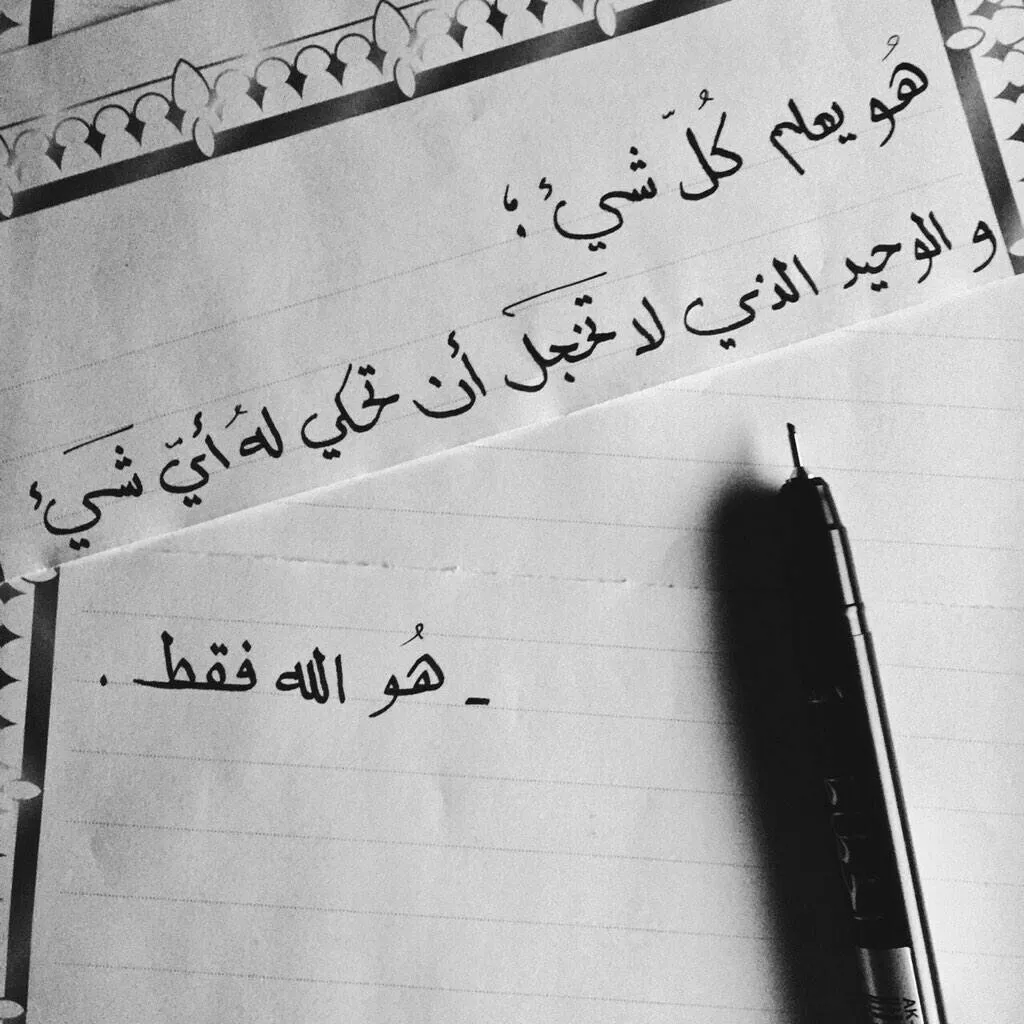 هُو يعلم كُلّ شيئ ؛
و الوحيد الذي لا تخجل أن تحكي لهُ أيّ شيئ
ـ هُو الله فقط .
AK